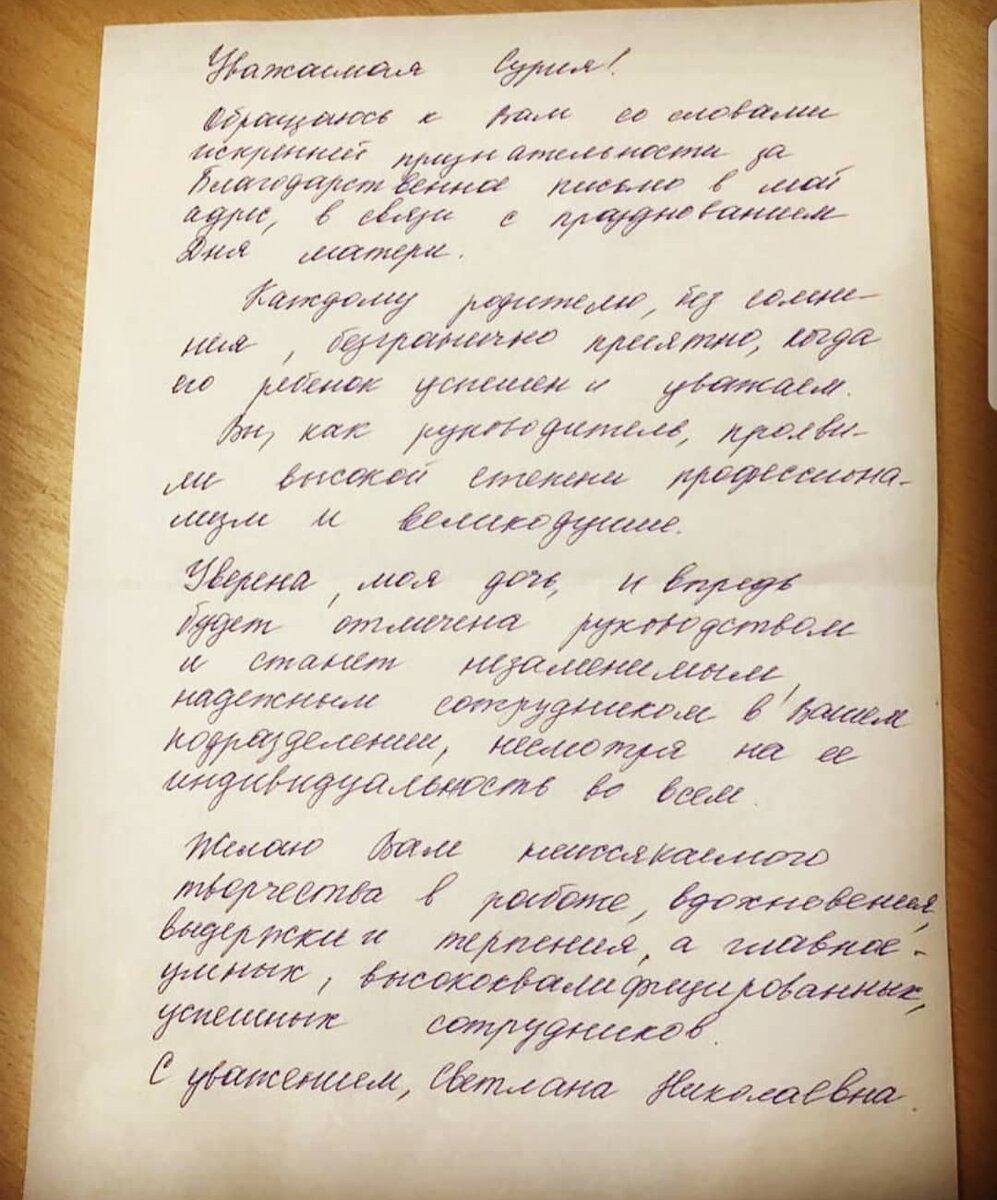 Уважаемая Сурия!
Обращаюсь к Вам со словами
искренней признательности за
Благодарственное письмо в мой
адрес, в связи с празднованием
Дня матери.
Каждому родителю, без сомне-
ния, безгранично приятно, когда
его ребенок успешен и уважаем.
Вы, как руководитель, прояви-
ли высокой степени профессиона-
лизм и великодушие.
Уверена, моя дочь, и впредь
будет отмечена руководством
и станет незаменимым,
надежным сотрудником в Вашем
подразделении, несмотря на ее
индивидуальность во всем.
Желаю Вам неиссякаемого
творчества в работе, вдохновения,
выдержки и терпения, а главное -
умных, высококвалифицированных,
успешных сотрудников.
С уважением, Светлана Николаевна.